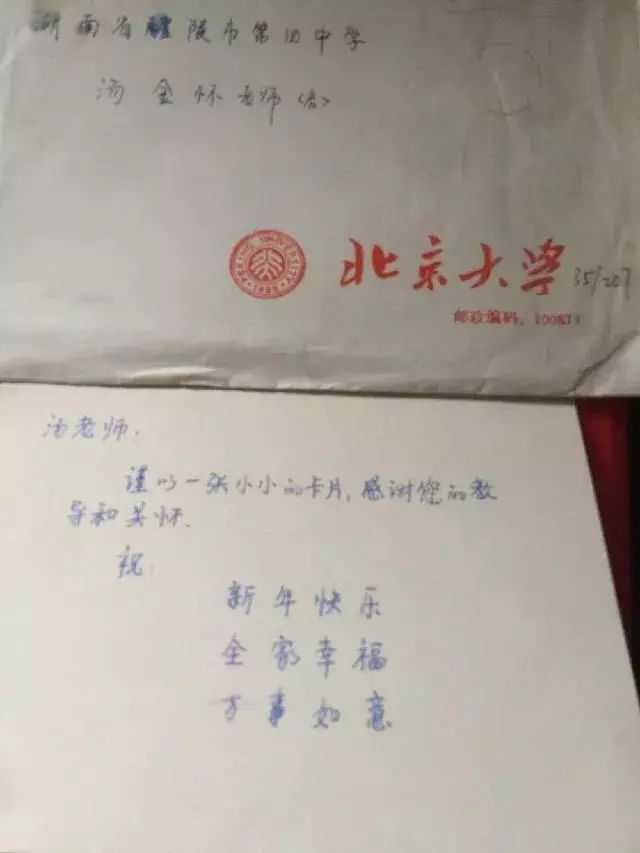 湖南省醴陵市第四中学
汤金怀老师(收)
PEKING UNIVERSITY
1898
北京大学 35/207
邮政编码:100871
汤老师:
谨以一张小小的卡片,感谢您的教
导和关怀.
祝:
新年快乐
全家幸福
万事如意